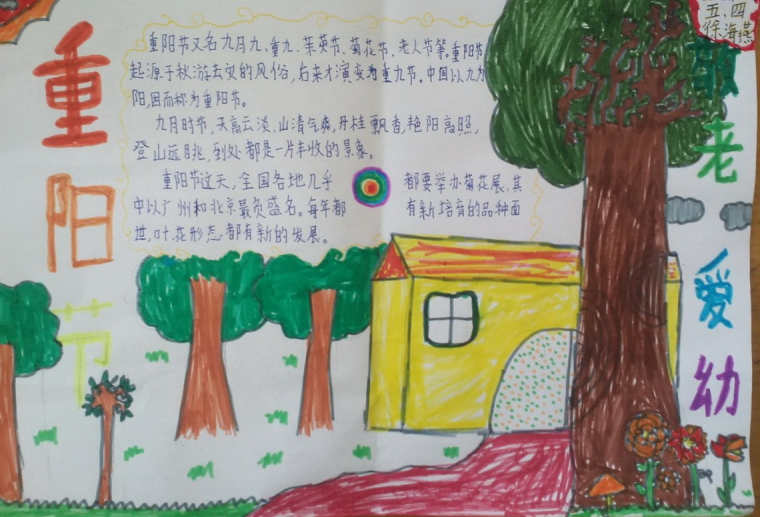 重阳节
重阳节又名九月九、重九、茱萸节、菊花节、老人节等。重阳节
起源于秋游去灾的风俗，后来才演变为重九节。中国以九为
阳，因而称为重阳节。
九月时节，天高云淡、山清气爽，丹桂飘香，艳阳高照，
登山远眺，到处都是一片丰收的景象。
重阳节这天，全国各地几乎都要举办菊花展，其
中以广州和北京最负盛名。每年都有新培育的品种面
世，叶、花形态都有新的发展。
五、四
徐海燕
敬老爱幼